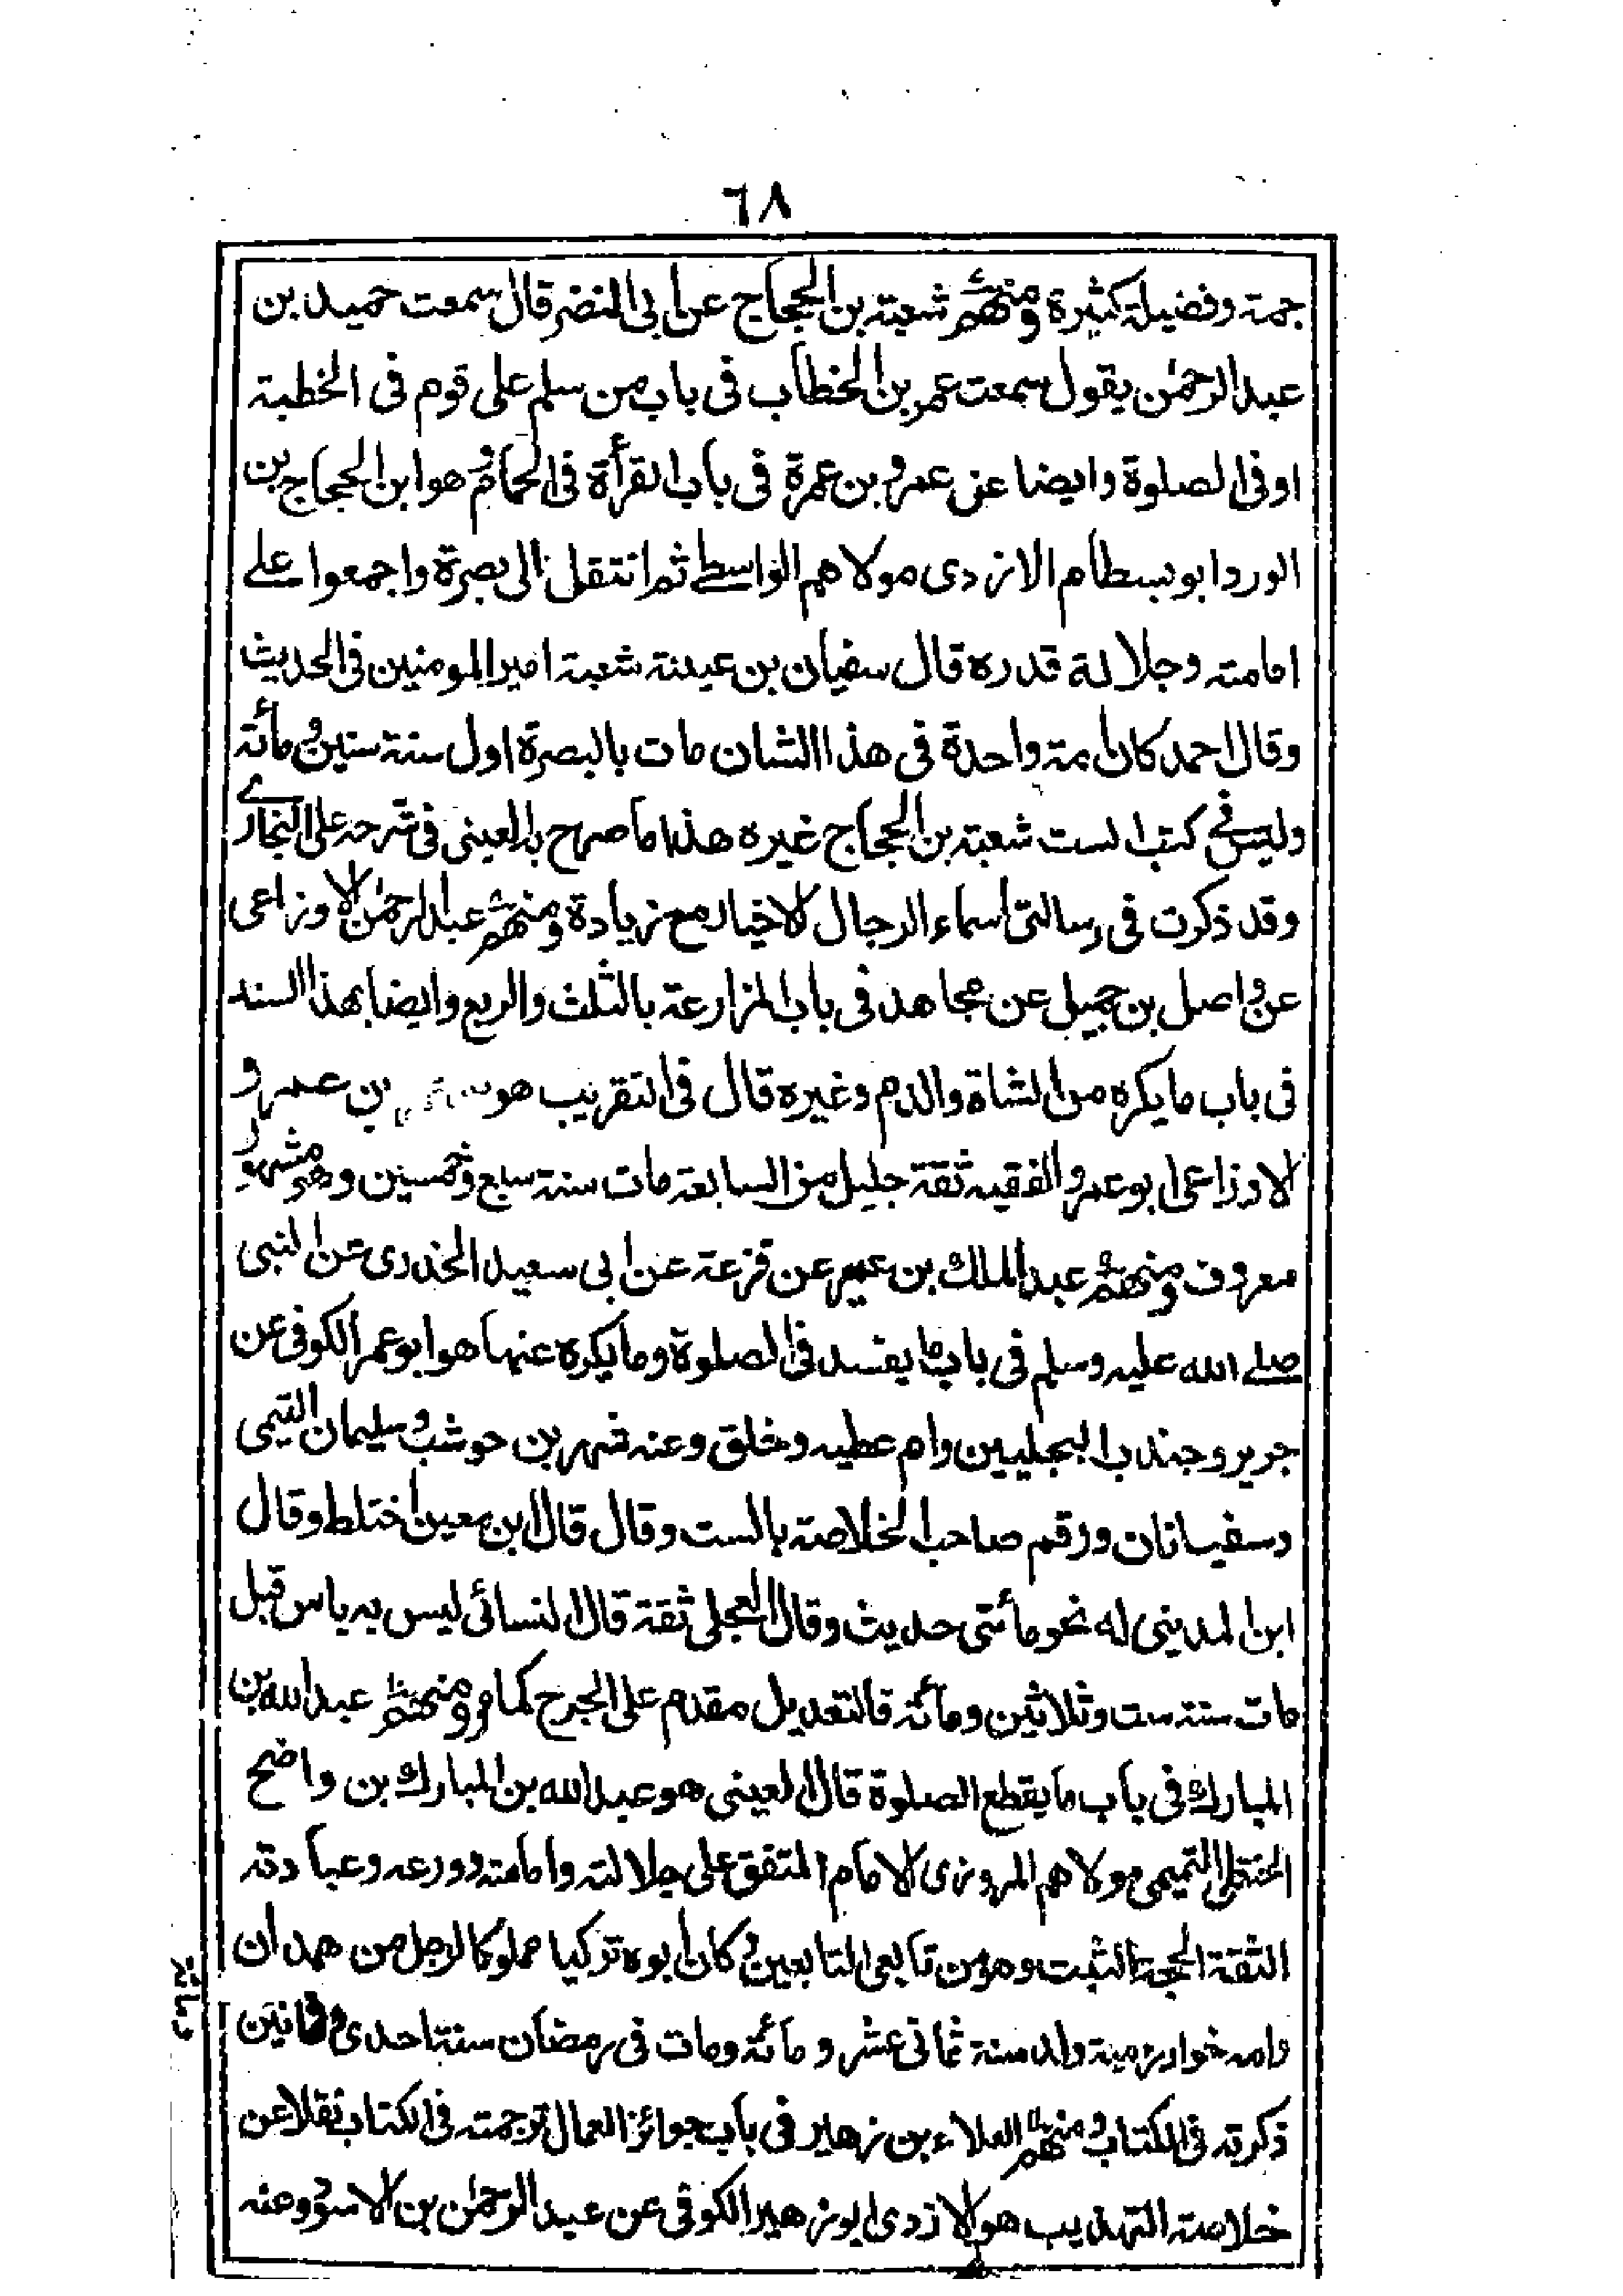 ٦٨
جمة وفضيلة كثيرة ومنهم شعبة بن الحجاج عن ابى النضر قال سمعت حميد بن
عبد الرحمٰن يقول سمعت عمر بن الخطاب فى باب من سلم على قوم فى الخطبة
او فى الصلوة وايضا عن عمرو بن عمرة فى باب القرأة فى الحمام وهو ابن الحجاج بن
الورد ابو بسطام الازدى مولاهم الواسطے ثم انتقل الى بصرة واجمعوا علے
امامته وجلالة قدره قال سفيان بن عيينة شعبة امير المومنين فى الحديث
وقال احمد كان أمة واحدة فى هذا الشان مات بالبصرة اول سنة ستين ومأئة
وليس فے كتب الست شعبة بن الحجاج غيره هذا ما صرح به العينى فى شرحه على البخارے
وقد ذكرت فى رسالتى اسماء الرجال الاخيار مع زيادة ومنهم عبد الرحمٰن الاوزاعى
عن واصل بن جميل عن مجاهد فى باب المزارعة بالثلث والربع وايضا بهذا السند
فى باب ما يكره من الشاة والدم وغيره قال فى التقريب هو بن عمرو
الاوزاعى ابو عمرو الفقيه ثقة جليل من السابعة مات سنة سبع وخمسين وهو مشهور
معروف ومنهم عبد الملك بن عمير عن قزعة عن ابى سعيد الخدرى عن النبى
صلے الله عليه وسلم فى باب ما يفسد فى الصلوة وما يكره عنها هو ابو عمر الكوفى عن
جرير وجندب البجليين وام عطيه وخلق وعنه شهر بن حوشب وسليمان التيمى
وسفيانان ورقم صاحب الخلاصة بالست وقال قال ابن معين اختلط وقال
ابن المدينى له نحو مأئتى حديث وقال العجلى ثقة قال النسائى ليس به باس قبل
مات سنة ست وثلاثين ومأئة فالتعديل مقدم على الجرح كما مر ومنهم عبد الله بن
المبارك فى باب ما يقطع الصلوة قال العينى هو عبد الله بن المبارك بن واضح
الحنظلى التميمى مولاهم المروزى الامام المتفق على جلالته وامامته وورعه وعبادته
الثقة الحجة الثبت وهو من تابعى التابعين وكان أبوه تركيا مملوكا لرجل من همدان
وامه خوارزمية ولد سنة ثمانى عشر ومأئة ومات فى رمضان سنة احدى وثمانين
ومأئة
ذكرته فى الكتاب ومنهم العلاء بن زهير فى باب جوائز العمال ترجمته فى الكتاب نقلا عن
خلاصة التهذيب هو الازدى ابو زهير الكوفى عن عبد الرحمٰن بن الاسود وعنه